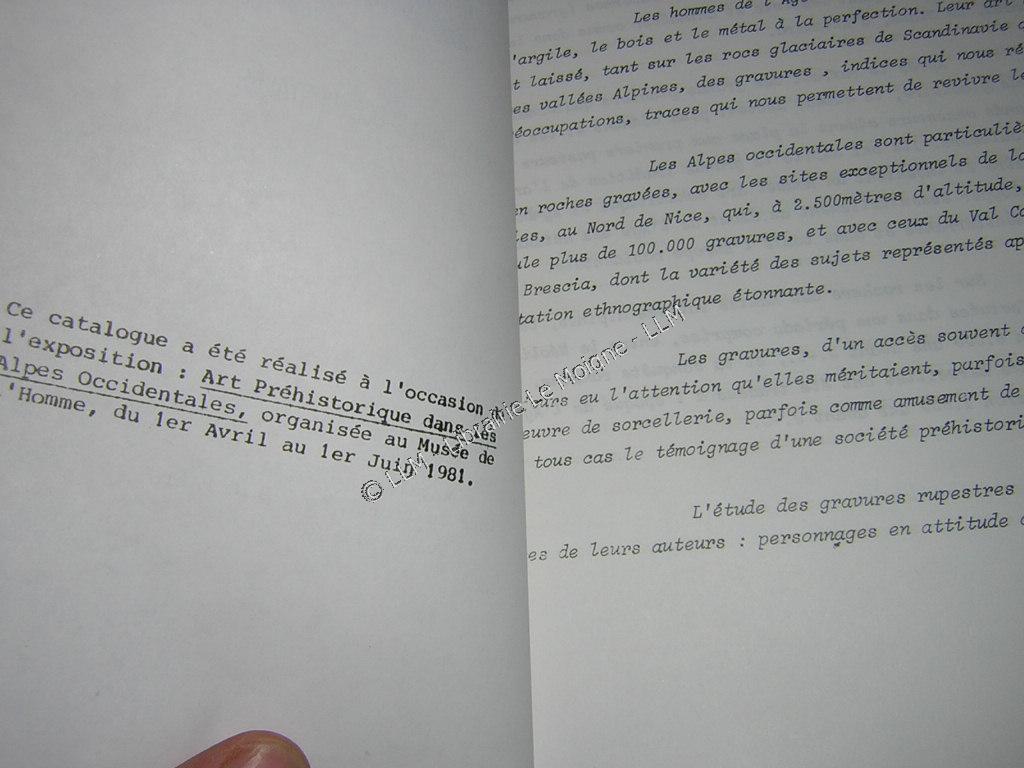 Ce catalogue a été réalisé à l'occasion
l'exposition : Art Préhistorique dans les
Alpes Occidentales, organisée au Musée de
l'Homme, du 1er Avril au 1er Juin 1981.
Les hommes de l'Ag
'argile, le bois et le métal à la perfection. Leur art
t laissé, tant sur les rocs glaciaires de Scandinavie
es vallées Alpines, des gravures , indices qui nous ré
éoccupations, traces qui nous permettent de revivre le
Les Alpes occidentales sont particuliè
en roches gravées, avec les sites exceptionnels de la
les, au Nord de Nice, qui, à 2.500mètres d'altitude,
ule plus de 100.000 gravures, et avec ceux du Val Ca
Brescia, dont la variété des sujets représentés ap
tation ethnographique étonnante.
Les gravures, d'un accès souvent
urs eu l'attention qu'elles méritaient, parfois
euvre de sorcellerie, parfois comme amusement de
tous cas le témoignage d'une société préhistori
L'étude des gravures rupestres
es de leurs auteurs : personnages en attitude
© LLM - Librairie Le Moigne - LLM